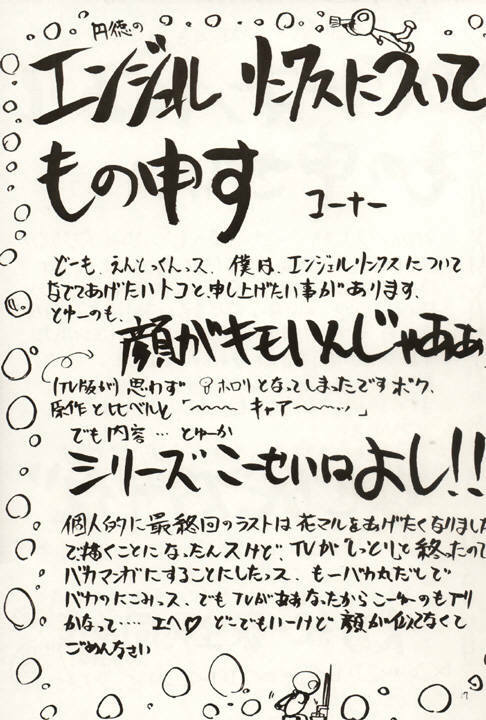 円徳の
エンジェルリンクスについて
もの申す
コーナー
どーも、えんとっくんっス、僕は、エンジェルリンクスについて
なでてあげたいトコと、申し上げたい事があります、
とゆーのも、
顔がキモいんじゃあぁ
(TV版が) 思わず ホロリとなってしまったですボク、
原作と比べルと「〜〜〜 キャア〜〜〜ッ」
でも内容… とゆーか
シリーズこーせいはよし!!
個人的に最終回のラストは花マルをあげたくなりました
で描くことになったんスけど、TVが「しっとり」と終ったので
バカマンガにすることにしたっス、もーバカ丸だしで
バカのにこみっス、でもTVがああなったからこーゆーのもアリ
かなって…. エヘ♡ どーでもいーけど 顔が似てなくて
ごめんなさい